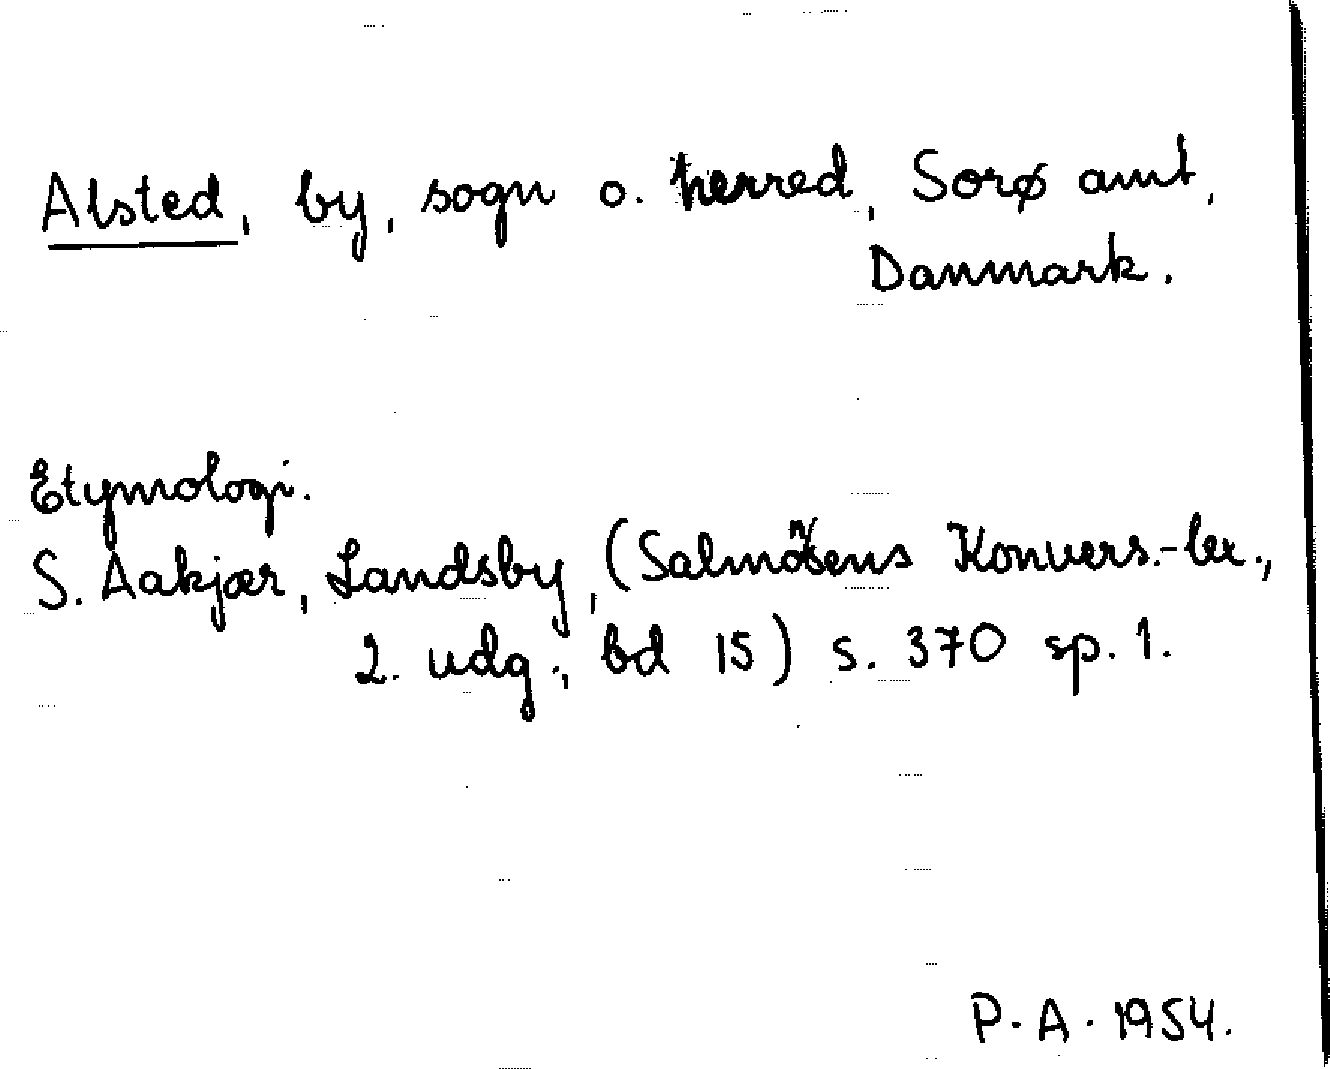 Alsted, by, sogn o. herred, Sorø amt,
Danmark.
Etymologi.
S. Aakjær, Landsby, (Salmonsens Konvers.-lex.,
2. udg., bd 15) s. 370 sp. 1.
P. A. 1954.